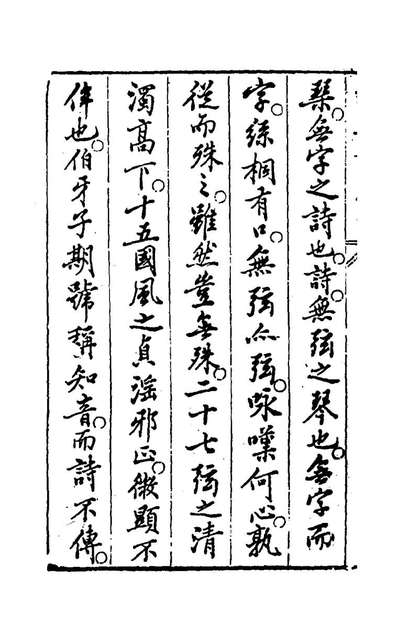 琴無字之詩也。詩無弦之琴也。無字而
字。絲桐有口。無弦而弦。咏嘆何心。孰
從而殊之。雖然豈無殊。二十七弦之清
濁高下。十五國風之貞滛邪正。微顯不
侔也。伯牙子期號稱知音。而詩不傳。